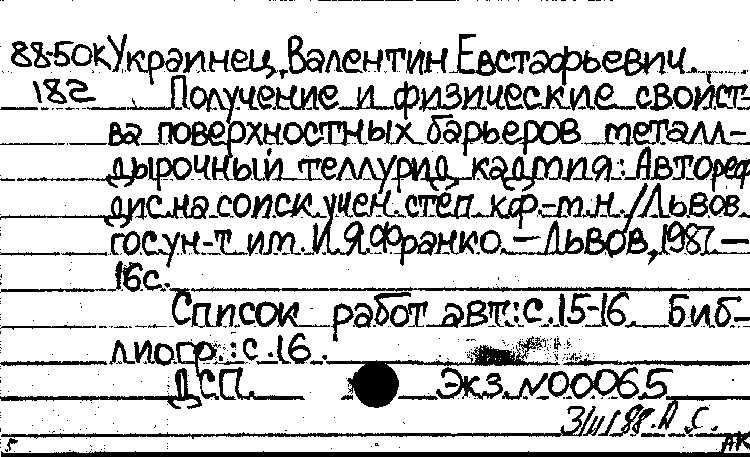 88-50К Украинец, Валентин Евстафьевич.
182 Получение и физические свойст-
ва поверхностных барьеров металл-
дырочный теллурид кадмия: Автореф
дис. на соиск. учен. степ. к.ф.-м.н. / Львов.
гос. ун-т им. И.Я. Франко. — Львов, 1987. —
16с.
Список работ авт.: с. 15-16. Биб-
лиогр.: с. 16.
ДСП. Экз. №00065
88. А. С.
5 АК